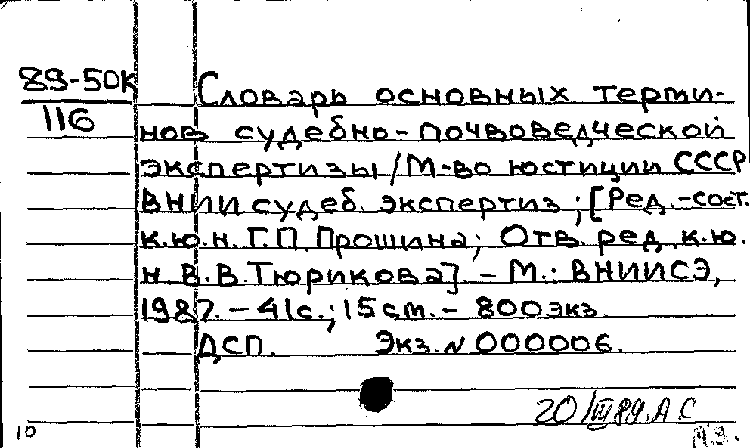 89-50К
116
Словарь основных терми-
нов судебно-почвоведческой
экспертизы/М-во юстиции СССР
ВНИИ судеб. экспертиз; [Ред.-сост.
к.ю.н. Г.П. Прошина; Отв. ред. к.ю.
н. В.В. Тюрикова]. - М.: ВНИИСЭ,
1987. - 41с.; 15 см. - 800 экз.
ДСП. Экз. N 000006.
20/III 89. А С
10